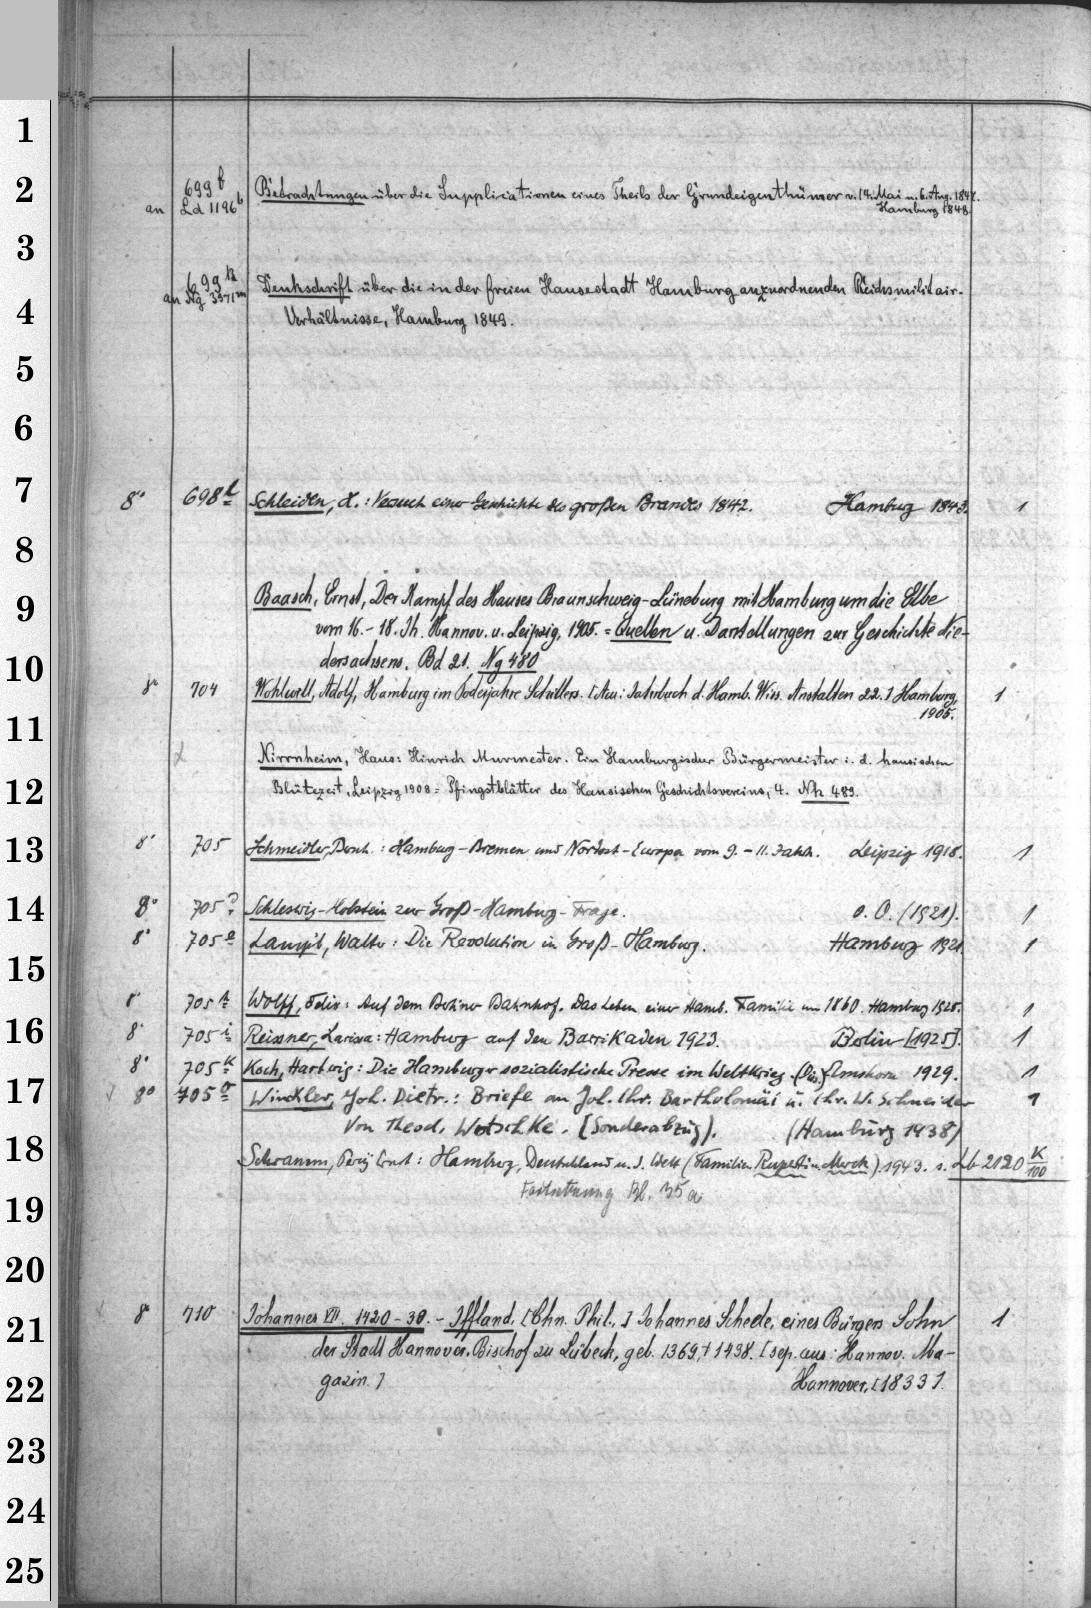 699 f
an Ld 1196 b Betrachtungen über die Supplicationen eines Theils der Grundeigenthümer v. 14. Mai u. 6. Aug. 1842.
Hamburg 1843.
699
an Ng 3371 m Denkschrift über die in der freien Hansestadt Hamburg anzuordnenden Reichsmilitair-
Verhältnisse, Hamburg 1849.
8° 698 Schleiden, : Versuch einer Geschichte des großen Brandes 1842. Hamburg 1843. 1
Baasch, Ernst, Der Kampf des Hauses Braunschweig-Lüneburg mit Hamburg um die Elbe
vom 16.-18. Jh. Hannov. u. Leipzig, 1905. = Quellen u. Darstellungen zur Geschichte Nie-
dersachsens. Bd 21. Ng 480
8° 704 Wohlwill, Adolf, Hamburg im Todesjahre Schillers. [Aus: Jahrbuch d. Hamb. Wiss. Anstalten 22.] Hamburg, 1
1905.
Nirrnheim, Hans: Hinrich Murmester. Ein Hamburgischer Bürgermeister i. d. hansischen
Blütezeit, Leipzig 1908 = Pfingstblätter des Hansischen Geschichtsvereins, 4. Nh 489.
8° 705 Schmeidler, Bernh. : Hamburg-Bremen und Nordost-Europa vom 9.-11. Jahrh. Leipzig 1918. 1
8° 705 Schleswig-Holstein zur Groß-Hamburg-Frage. o. O. (1921). 1
8° 705 e Lampl, Walter : Die Revolution in Groß-Hamburg. Hamburg 1921. 1
8° 705 h Wolff, Felix: Auf dem Berliner Bahnhof. Das Leben einer Hamb. Familie um 1860. Hamburg 1925. 1
8° 705 i Reissner, Larissa: Hamburg auf den Barrikaden 1923. Berlin [1925]. 1
8° 705 k Koch, Hartwig: Die Hamburger sozialistische Presse im Weltkrieg. (Dis.) Elmshorn 1929. 1
8° 705 Winckler, Joh. Dietr.: Briefe an Joh. Chr. Bartholomäi u. Chr. W. Schneider 1
Von Theod. Wotschke. [Sonderabzug]. (Hamburg 1938)
Schramm, Percy Ernst: Hamburg, Deutschland u. d. Welt (Familien Ruperti u. Merck). 1943. s. Lb 2120 K/100
Fortsetzung Bl. 35 a
8° 710 Johannes VII. 1420-39. - Iffland, [Chn. Phil.,] Johannes Schele, eines Bürgers Sohn 1
der Stadt Hannover, Bischof zu Lübeck, geb. 1369, † 1438. [sep. aus: Hannov. Ma-
gazin.] Hannover, [1833].
1
2
3
4
5
6
7
8
9
10
11
12
13
14
15
16
17
18
19
20
21
22
23
24
25